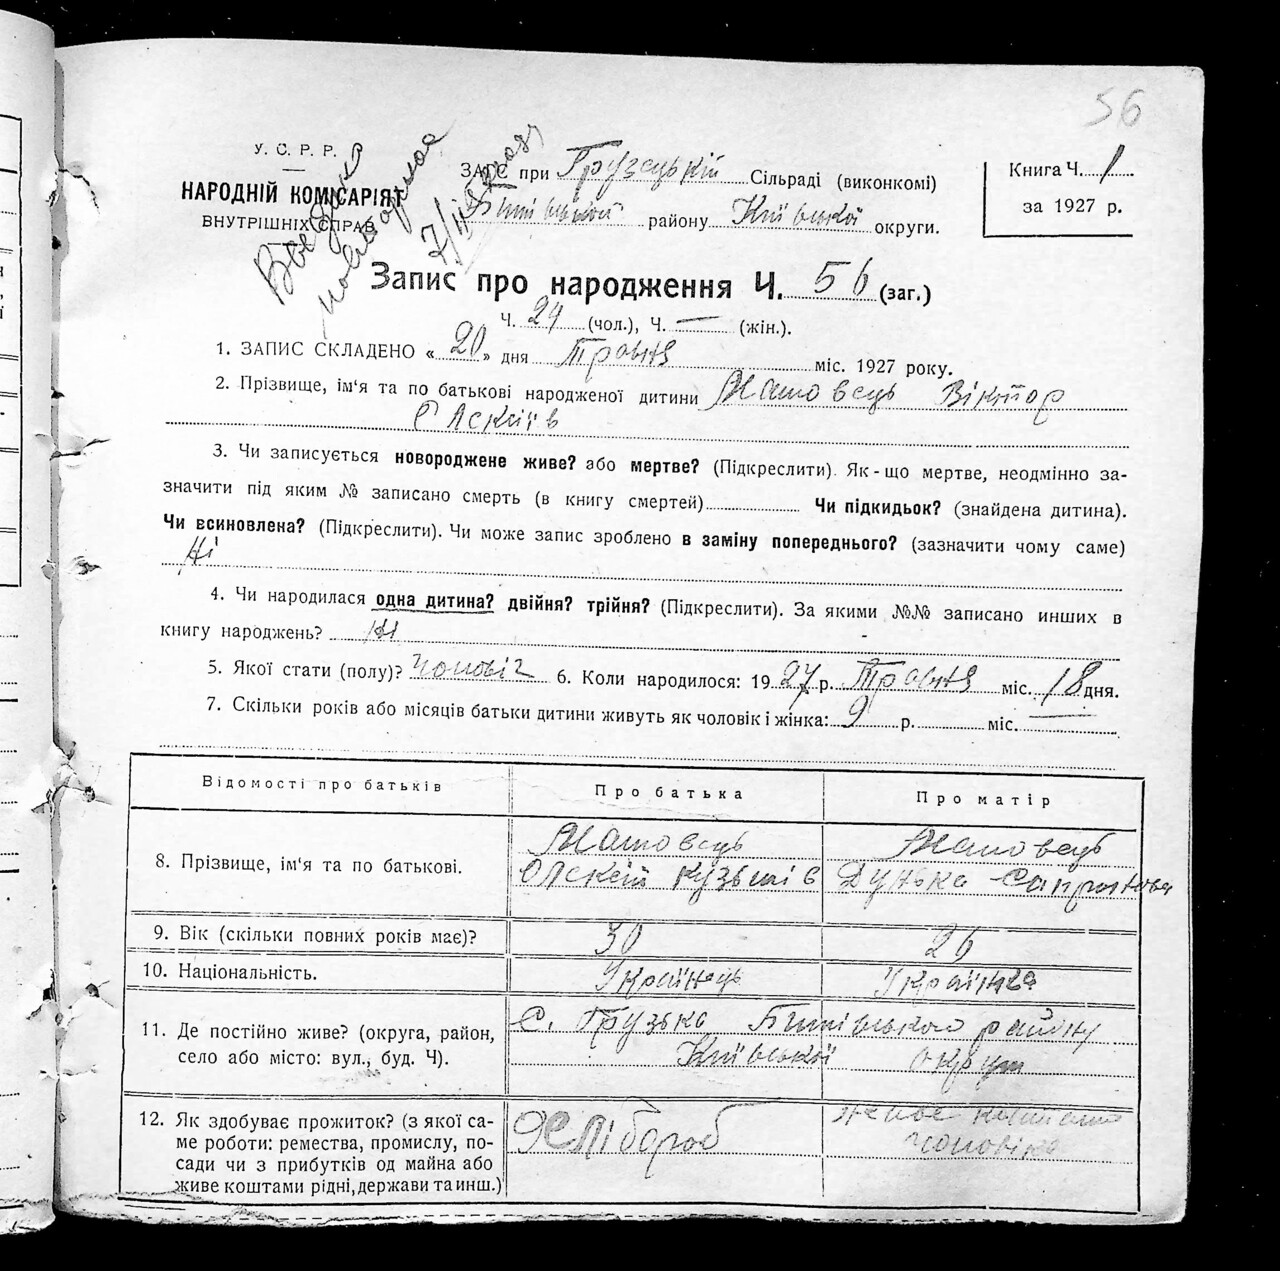 56
У. С. Р. Р.
НАРОДНІЙ КОМІСАРІЯТ
ВНУТРІШНІХ СПРАВ
ЗАГС при Грузецькій Сільраді (виконкомі)
району Київської округи.
Книга Ч. 1
за 1927 р.
Запис про народження Ч. 56 (заг.)
Ч. 24 (чол.), Ч. — (жін.).
1. ЗАПИС СКЛАДЕНО « 20 » дня Травня міс. 1927 року.
2. Прізвище, ім'я та по батькові народженої дитини Жаловець Віктор
Олскіїв
3. Чи записується новороджене живе? або мертве? (Підкреслити). Як-що мертве, неодмінно за-
значити під яким № записано смерть (в книгу смертей) Чи підкидьок? (знайдена дитина).
Чи всиновлена? (Підкреслити). Чи може запис зроблено в заміну попереднього? (зазначити чому саме)
Ні
4. Чи народилася одна дитина? двійня? трійня? (Підкреслити). За якими №№ записано инших в
книгу народжень? Ні
5. Якої стати (полу)? Чоловіч 6. Коли народилося: 1927 р. Травня міс. 18 дня.
7. Скільки років або місяців батьки дитини живуть як чоловік і жінка: 9 р. міс. —
Відомості про батьків Про батька Про матір
8. Прізвище, ім'я та по батькові.
Жаловець Жаловець
Олскій Кузьмів Дунька
9. Вік (скільки повних років має)? 30 26
10. Національність. Українець Українка
11. Де постійно живе? (округа, район,
село або місто: вул., буд. Ч).
с. Грузька району
Київської округи
12. Як здобуває прожиток? (з якої са-
ме роботи: ремества, промислу, по-
сади чи з прибутків од майна або
живе коштами рідні, держави та инш.)
Хлібороб
живе коштами
чоловіка